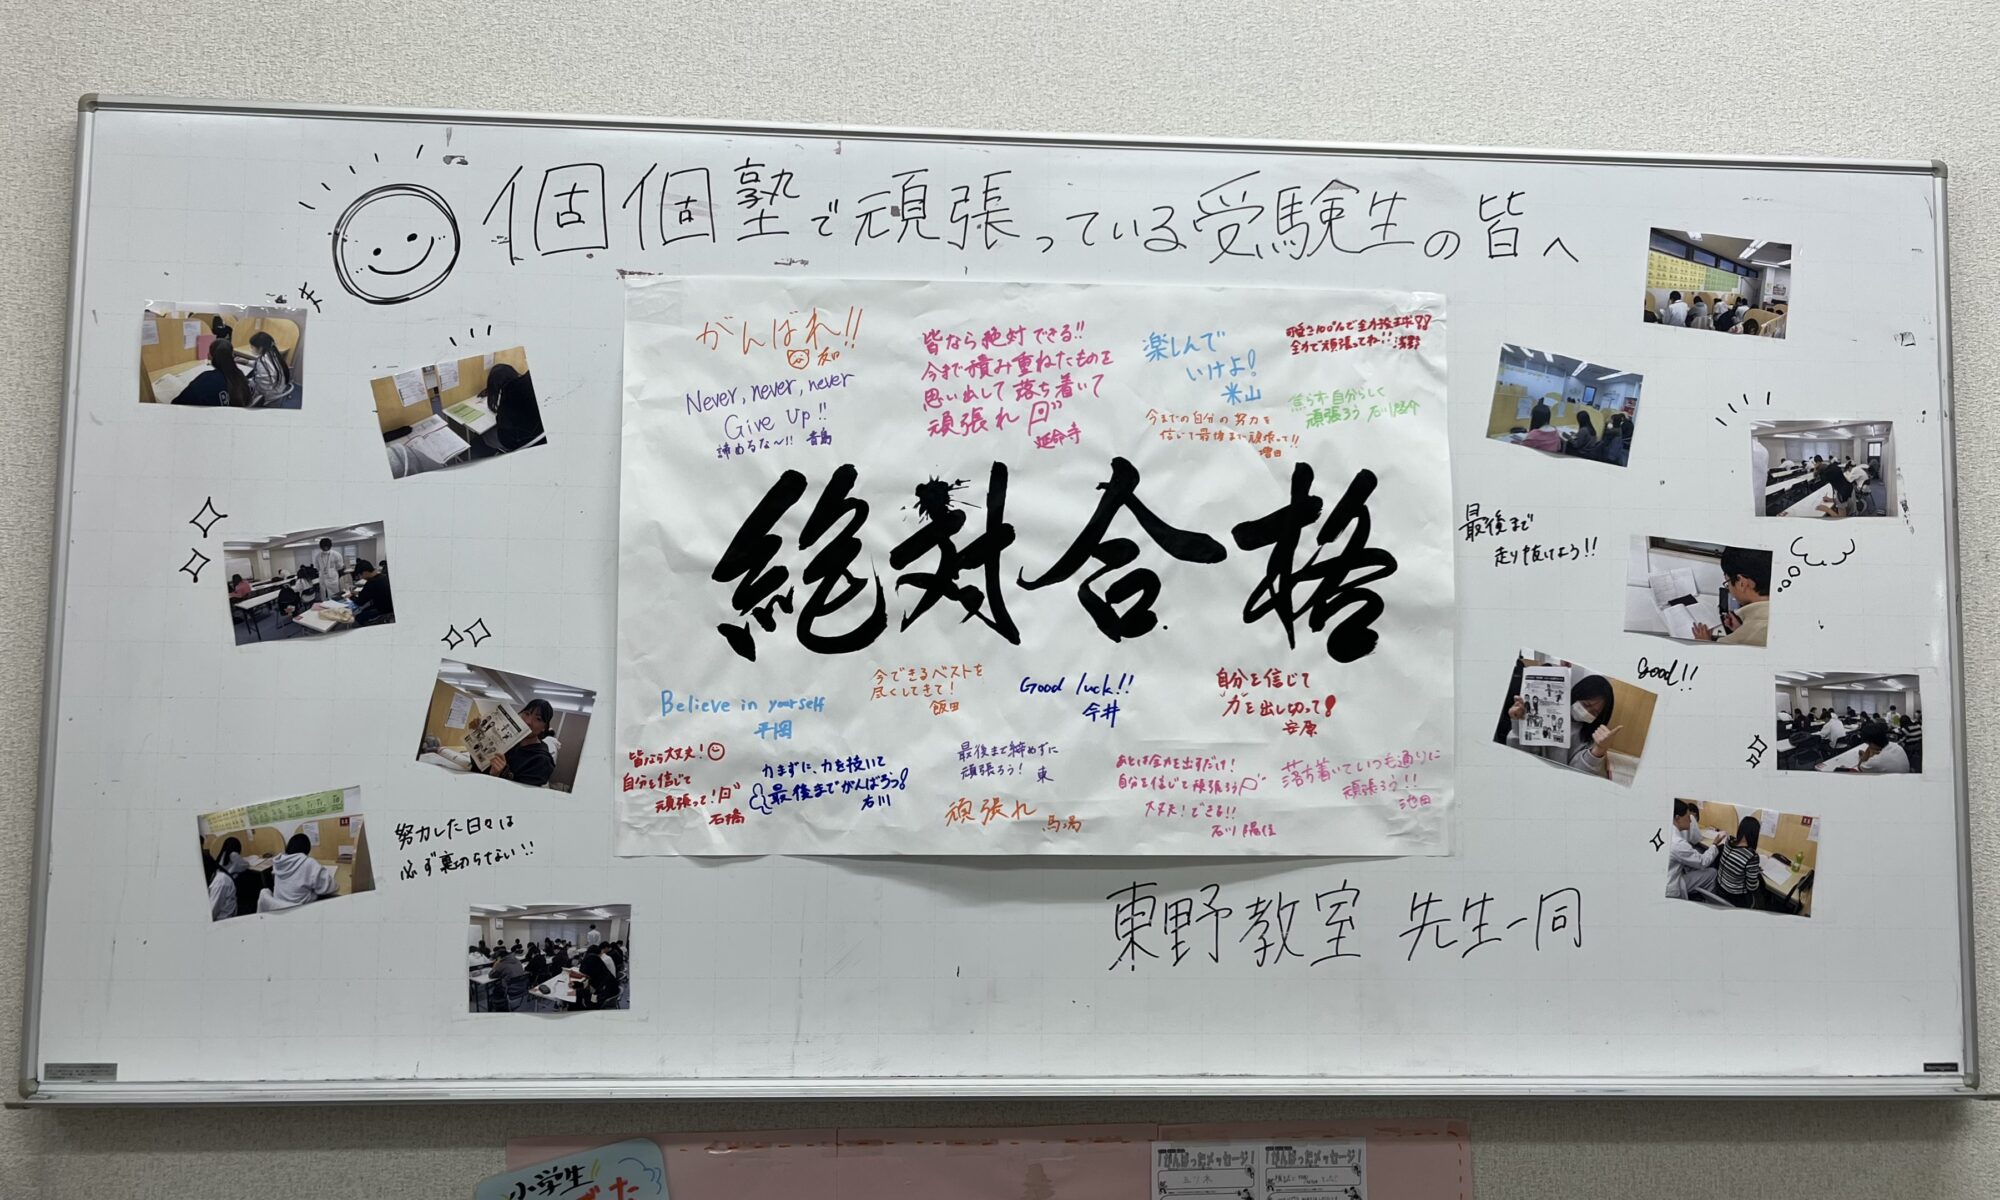 個個塾で頑張っている受験生の皆へ
がんばれ!!
Never, never, never
Give Up!!
諦めるな〜!!
皆なら絶対できる!!
今まで積み重ねたものを
思い出して落ち着いて
頑張れ
延命寺
楽しんで
いけよ!
米山
全力で頑張ってね!! 浅野
今までの自分の努力を
信じて最後まで頑張って!!
増田
焦らず自分らしく
頑張ろう
絶対合格
Believe in yourself
平岡
今できるベストを
尽くしてきて!
飯田
Good luck!!
今井
自分を信じて
力を出し切って!
安原
皆なら大丈夫!
自分を信じて
頑張って!
石橋
力まずに、力を抜いて
最後までがんばろう!
石川
最後まで締めずに
頑張ろう! 東
頑張れ 馬場
あとは全力を出すだけ!
自分を信じて頑張ろう
大丈夫!できる!!
石川
落ち着いていつも通りに
頑張ろう!!
池田
最後まで
走り抜けよう!!
Good!!
努力した日々は
必ず裏切らない!!
東野教室 先生一同
小学生
「がんばったメッセージ!
「がんばったメッセージ!